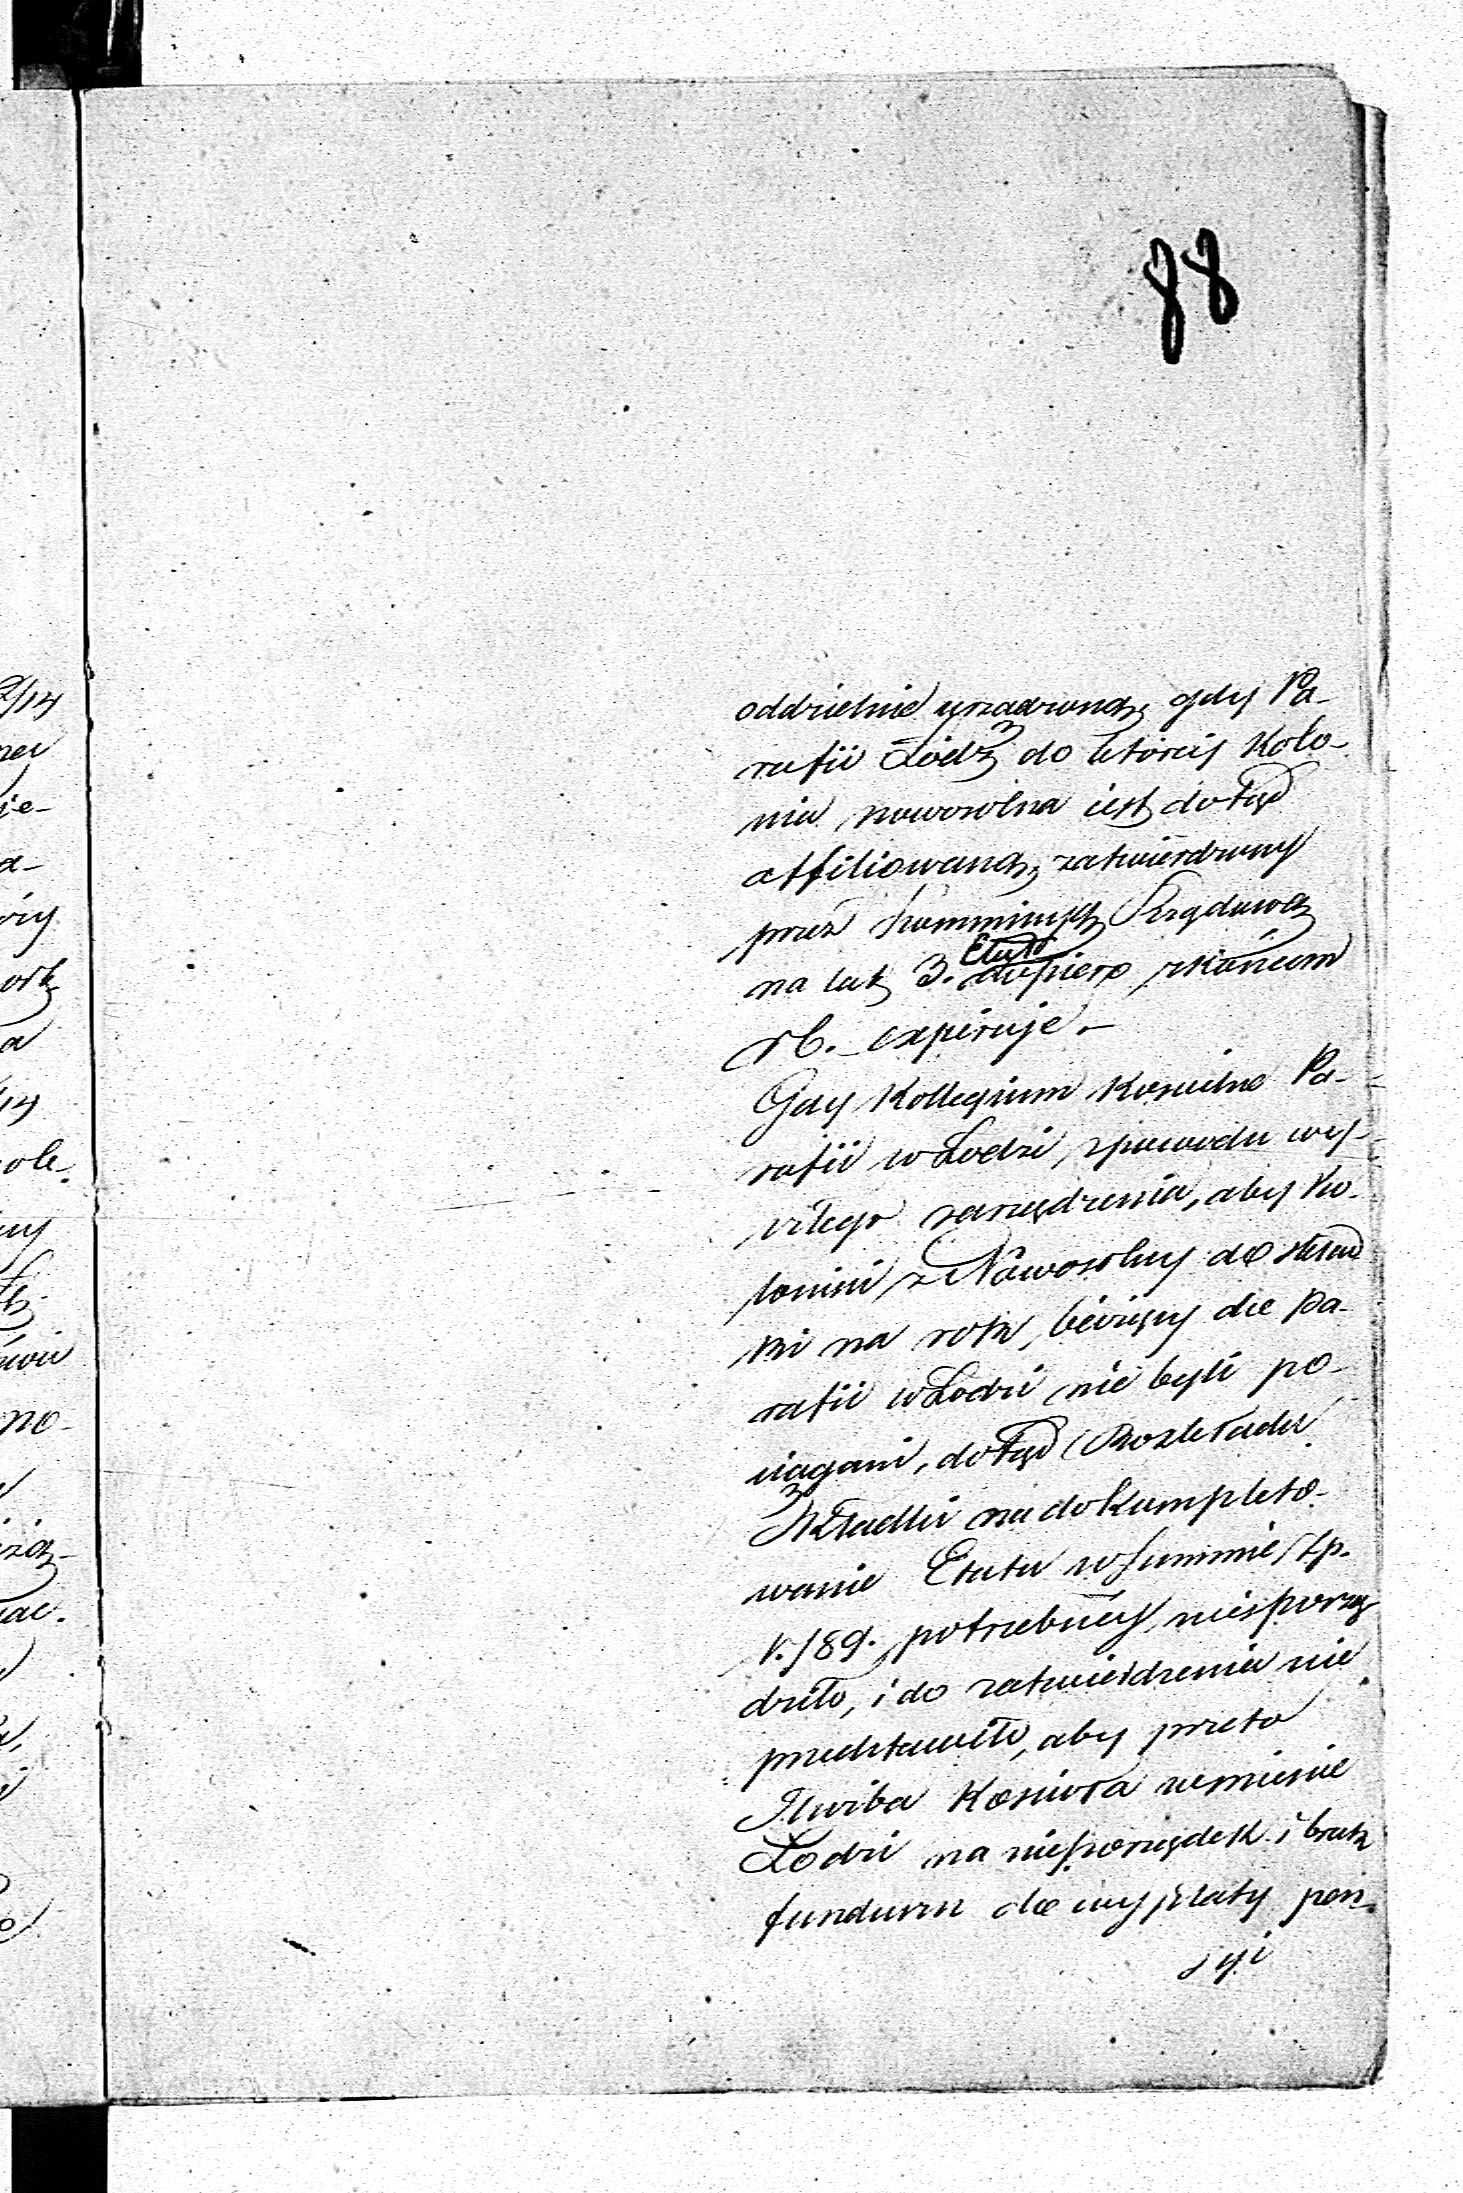 88
oddzielnie urządzoną, gdy Pa-
rafii Łódź do którey Kolo-
nia nowosolna iest dotąd
affiliowaną, zatwierdzony
przez Kommissyą Rządową
na lat 3. Etat dopiero zkońcem
rb. expiruje.–
Gdy Kollegium Kościelne Pa-
rafii w Łodzi, zpowodu wy-
rzutego zarządzenia, aby Ko-
loniści z Nowosolny do składki
na rok bieżący do pa-
rafii w Łodzi nie byli po-
ciągani, dotąd Rozkładu
Składki na dokompleto-
wanie Etatu w Summie Zp.
1.789. potrzebney niesporzą
dziło, i do zatwierdzenia nie
przedstawiło, aby przeto
Służba Kościoła w mieście
Łodzi na nieporządek i brak
funduszu do wypłaty pen-
syi